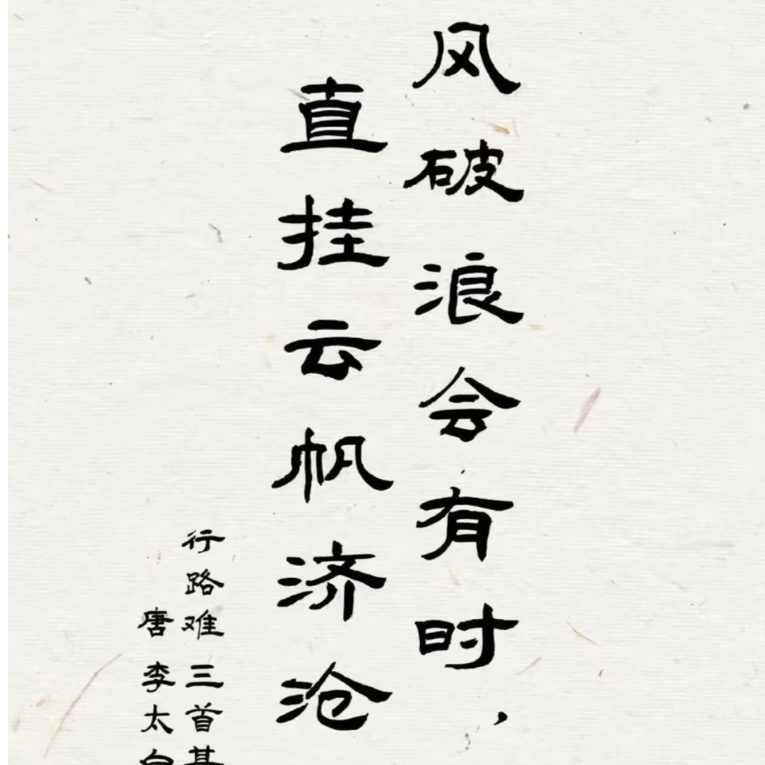 风破浪会有时，
直挂云帆济沧
行路难 三首其
唐 李太白